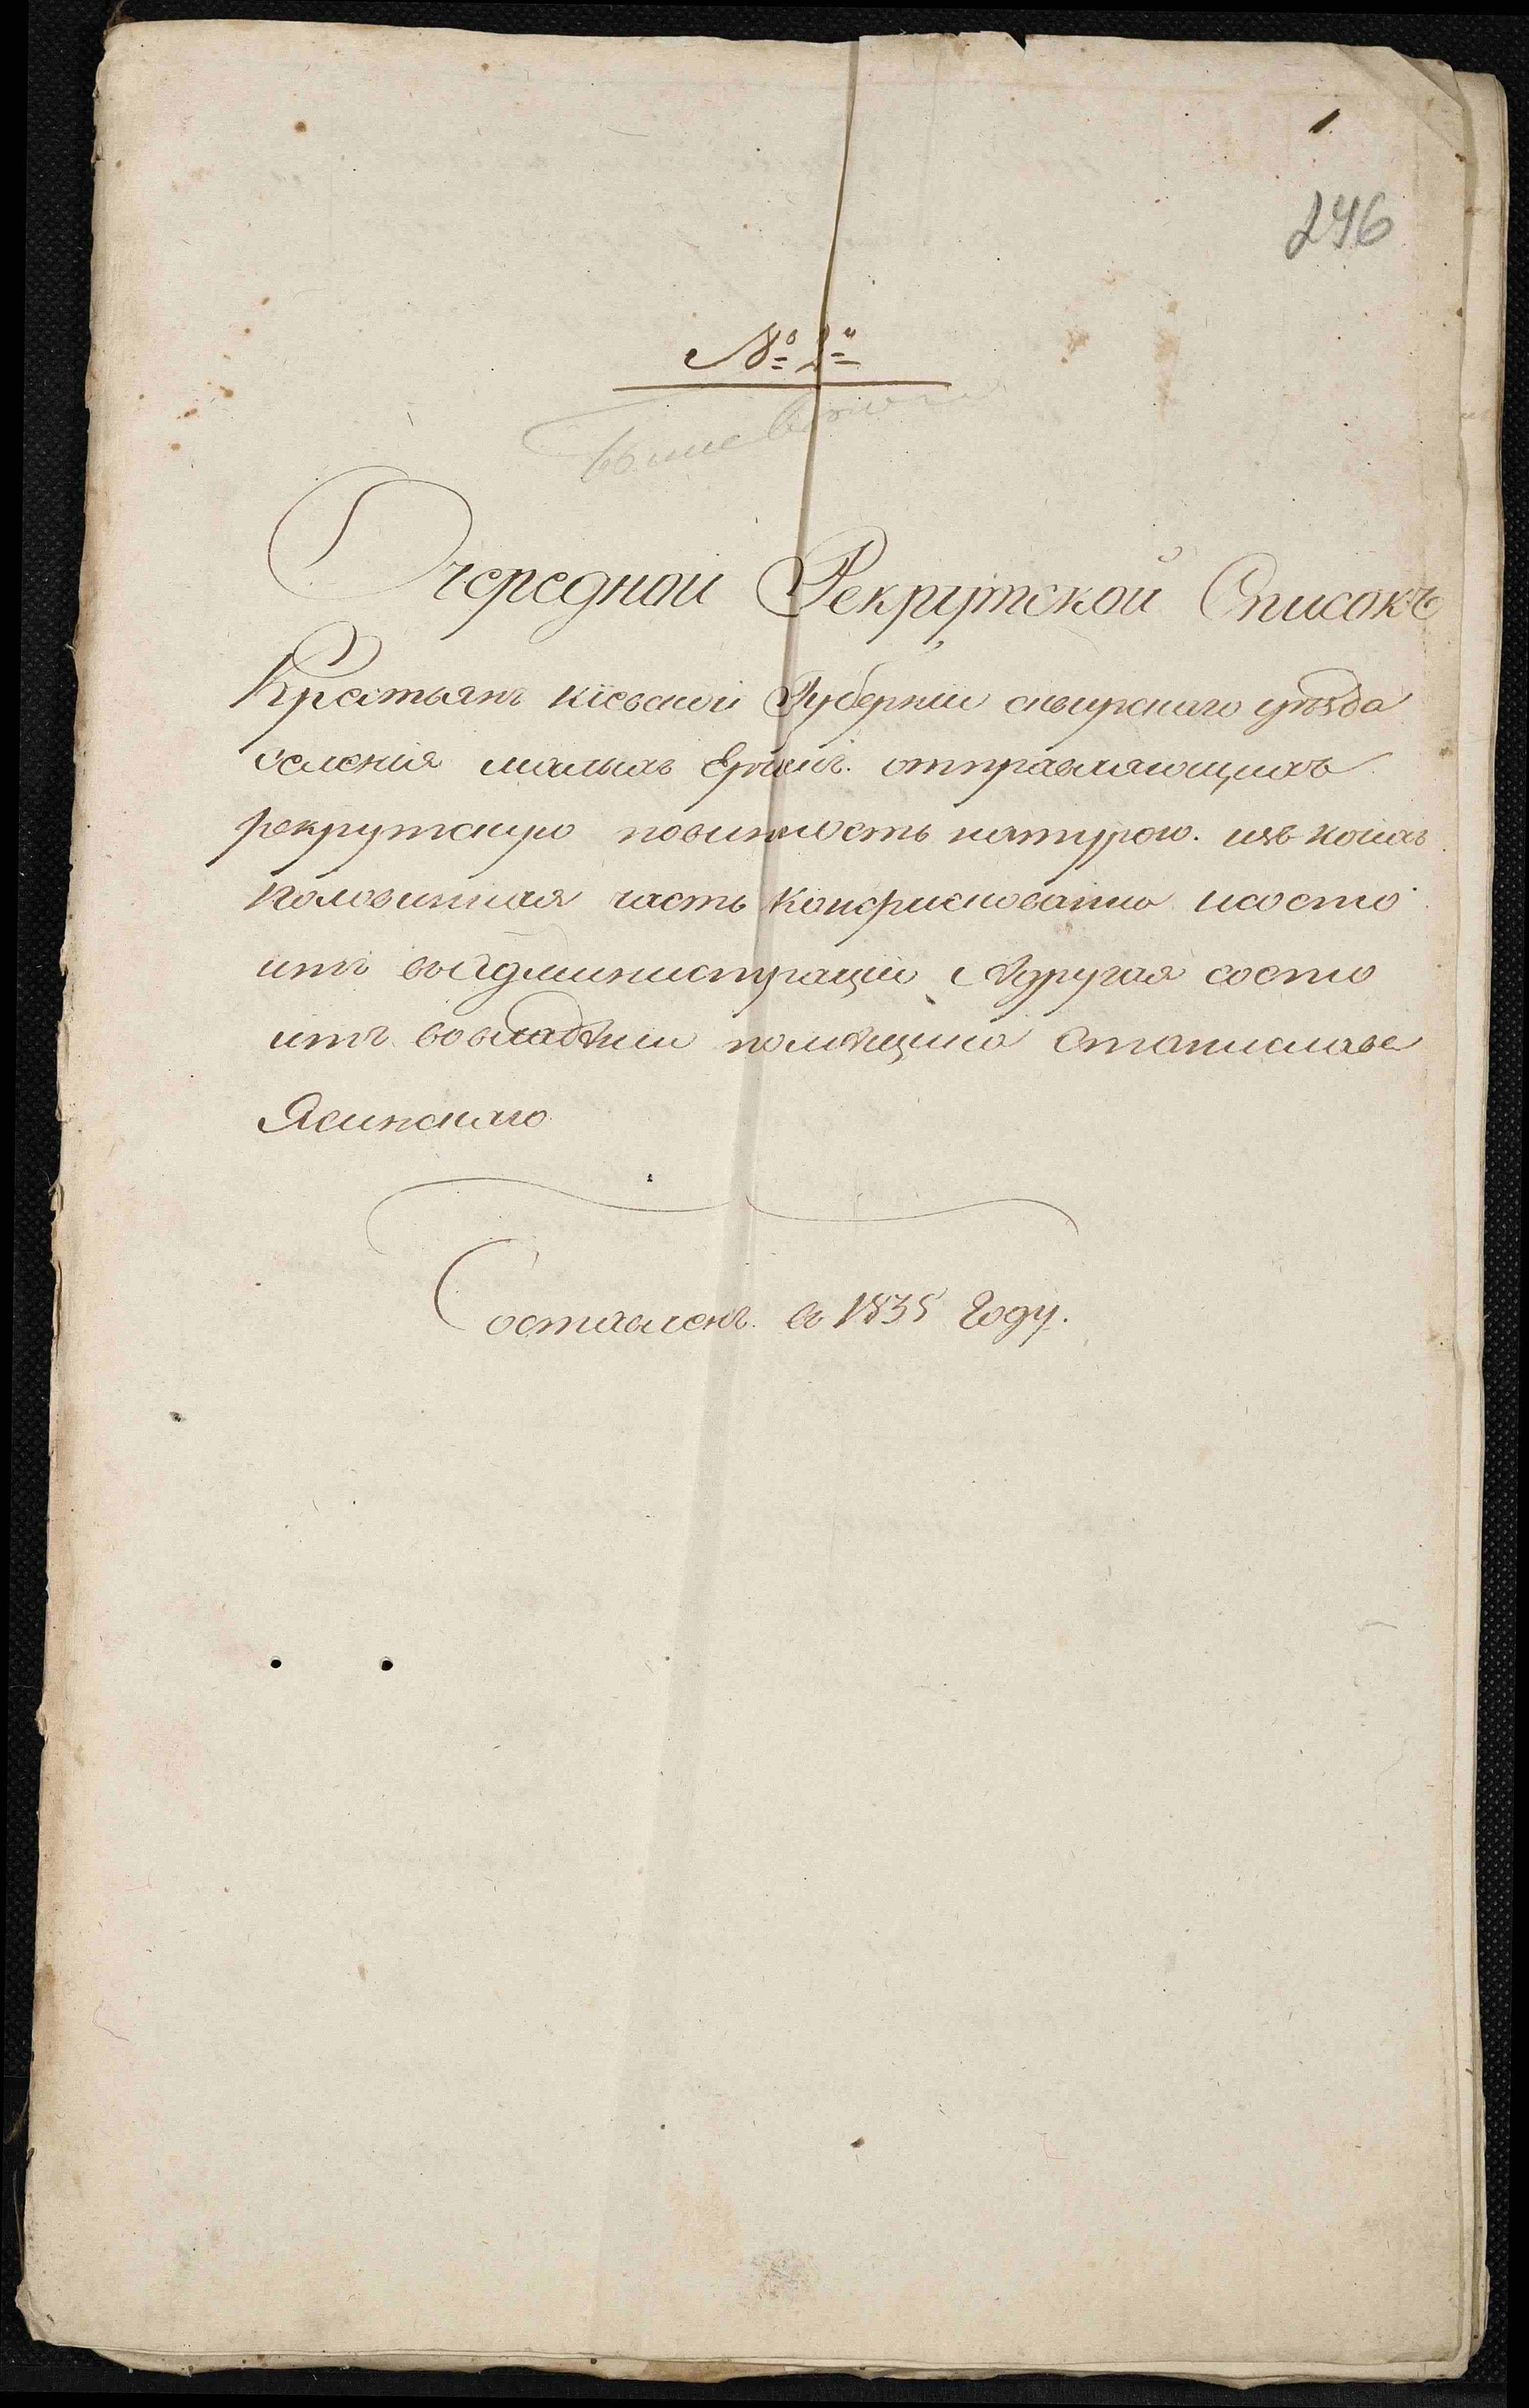 1.
246
№ 2
Очередной Рекрутской Списокъ
Крестьянъ Кіевской Губерніи сквирскаго уѣзда
селенія малыхъ Ерчикъ. отправляющихъ
рекрутскую повинность натурою. изъ коихъ
половинная часть конфискованна исосто
итъ въ Администраціи Адругая состо
итъ вовладѣнии помѣщика Станислава
Ясинскаго
Составленъ в 1835 Году.